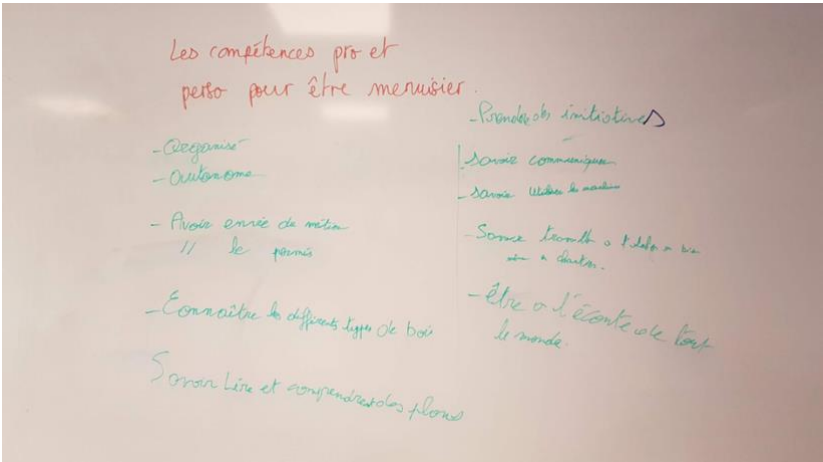 Les compétences pro et
perso pour être menuisier.
- Organisé
- autonome
- Avoir envie de métier
// le permis
- Connaître les différents types de bois
Savoir Lire et comprendre des plans
- Prendre des initiatives
- Savoir communiquer
- Savoir utiliser les machines
- Savoir
- être a l'écoute de tout
le monde.